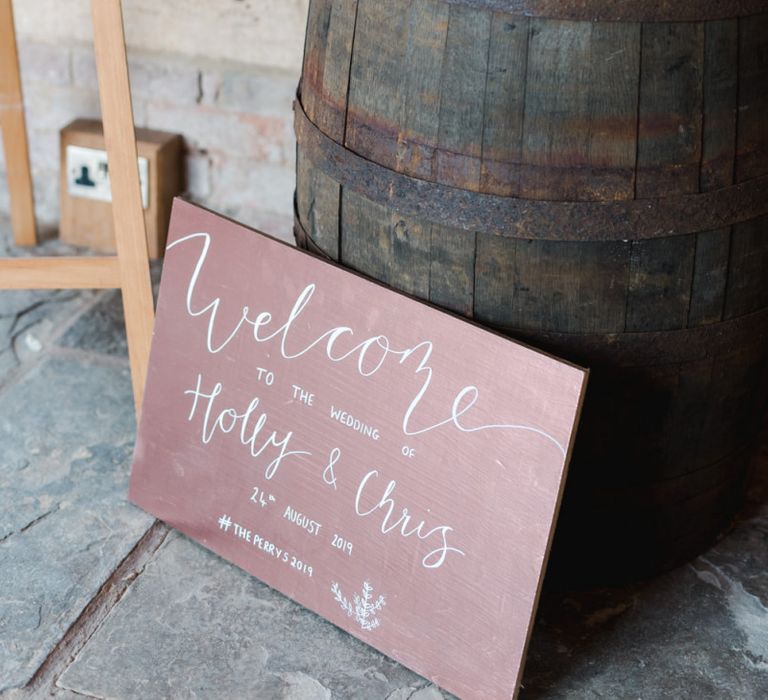 Welcome
TO THE WEDDING OF
Holly & Chris
24th AUGUST 2019
#THEPERRYS2019